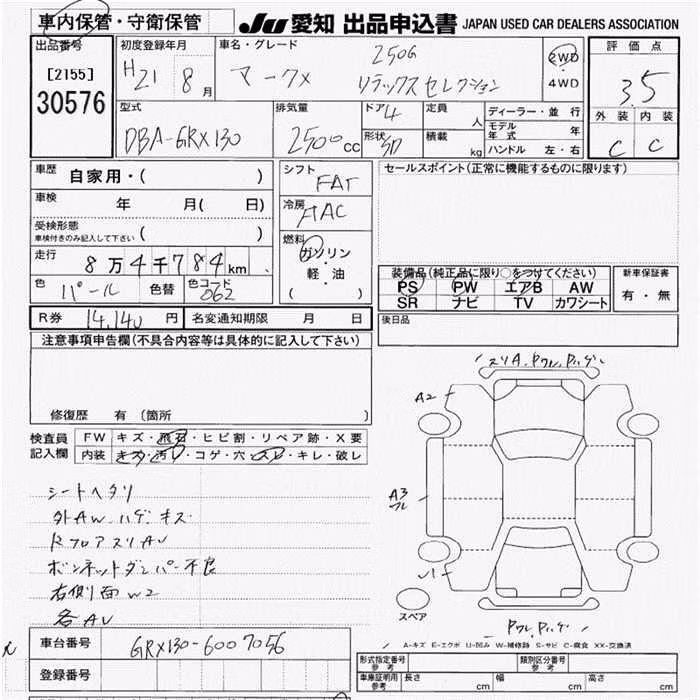 車内保管・守衛保管 JU 愛知 出品申込書 JAPAN USED CAR DEALERS ASSOCIATION
出品番号 初度登録年月 車名・グレード 250G 2WD 評価点
[2155] H21 8月 マークX リラックスセレクション ・ 3.5
30576 4WD
外装 内装
型式 排気量 ドア 4 定員 人 ディーラー・並行
モデル年式 年
DBA-GRX130 2500cc 形状 SD 積載 kg ハンドル 左・右 C C
車歴 自家用・( ) シフト FAT セールスポイント(正常に機能するものに限ります)
車検 年 月( 日) 冷房 AAC
受検形態 ( )
車検付きのみ記入して下さい
走行 8万4千784km 燃料 ガソリン・軽・油 ( )
装備品(純正品に限り○をつけてください) 新車保証書
色 パール 色替 色コード 062 PS PW エアB AW 有・無
SR ナビ TV カワシート
R券 14,140円 名変通知期限 月 日 後日品
注意事項申告欄(不具合内容等は具体的に記入して下さい)
スリA、Pワレ、Pハゲ
A2
修復歴 有 (箇所
検査員記入欄 FW キズ・飛石・ヒビ割・リペア跡・X要
内装 キズ・汚レ・コゲ・穴・スレ・キレ・破レ
シートヘタリ A3
外AW、ハゲ、キズ フレ
Rフロアスリ AU
ボンネットダンパー不良 1
右側面W2 スペア
各AU Pワレ、Pハゲ
A-キズ E-エクボ U-凹み W-補修跡 S-サビ C-腐食 XX-交換済
車台番号 GRX130-6007056
登録番号 形式指定番号参考 類別区分番号参考
車庫証明用参考 長さ cm 幅 cm 高さ cm